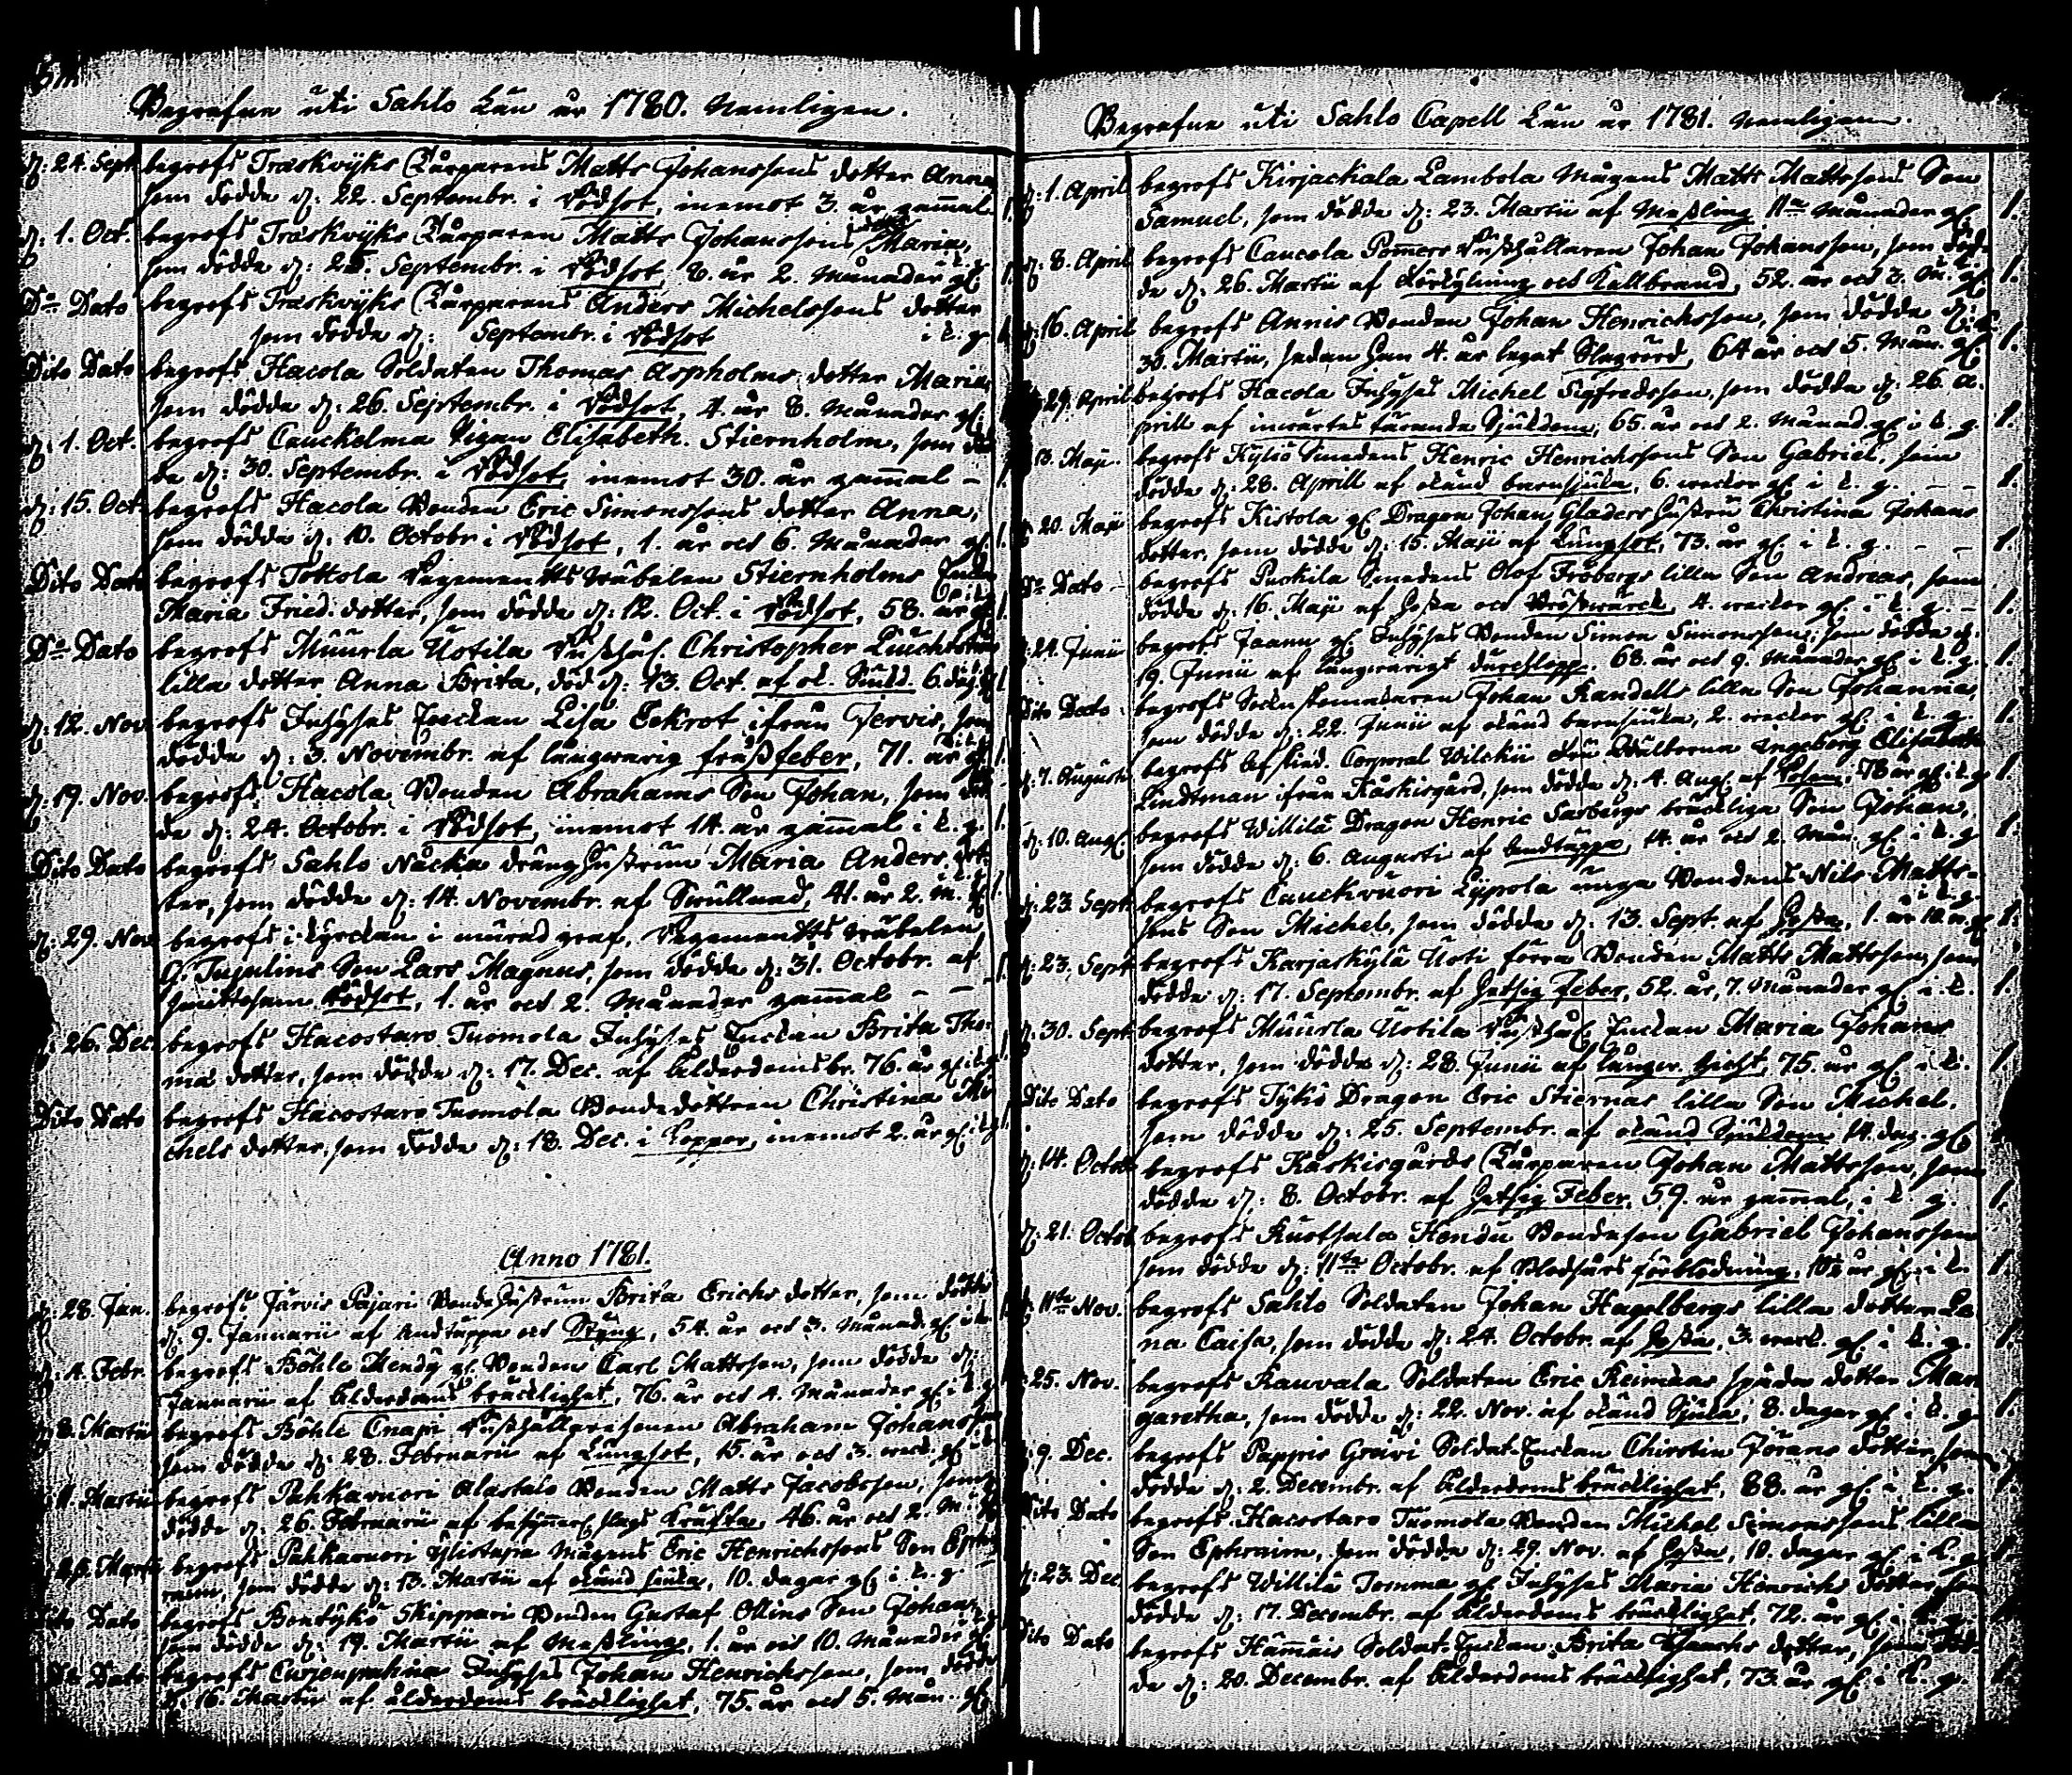 Begrafne uti Sahlo Län år 1780. Nemligen.
d: 24. Sept. begrofs Träskvyks Torparens Matts Johanssons dotter Anna
som dödde d: 22. Septembr. i Rödsot, inemot 3. år gammal
d: 1. Oct. begrofs Träskvyks Torparen Matts Johanssons dotter Maria,
som dödde d: Septembr. i Rödsot, 8. år 2. Månader gl.
Do Dato begrofs Träskvyks Torparens Anders Michelssons dotter
som dödde d: Septembr. i Rödsot i k. g.
Dito Dato begrofs Hacola Soldaten Thomas Aspholms dotter Maria
som dödde d: 26. Septembr. i Rödsot, 4. år 8. Månader gl.
d: 1. Oct. begrofs Cauckelma Pigan Elisabeth Stiernholm, som död
de d: 30. Septembr. i Rödsot, inemot 30. år gammal
d: 15. Oct. begrofs Hacola Bonden Eric Simonssons dotter Anna,
som dödde d: 10. Octobr. i Rödsot, 1. år och 6. Månader gl.
Dito Dato begrofs Tottola Regements Stiernholms
Maria Fried. dotter, som dödde d: 12. Oct. i Rödsot, 58. år gl.
Do Dato begrofs Muurla Uotila Rusthål. Christopher
lilla dotter Anna Brita, död d: 13. Oct. af ok. Siukd. 6. dag. gl.
d: 12. Nov. begrofs Inhyses Enckan Lisa Eekrot ifrån Jervis, som
dödde d: 3. Novembr. af långwarig fråßfeber, 71. år gl.
d: 19. Nov. begrofs Hacola Bonden Abrahams Son Johan, som död
de d: 24. Octobr. i Rödsot, inemot 14. år gammal i k. g.
Dito Dato begrofs Sahlo Näcka dräng Hustrun Maria Anders dot-
ter, som dödde d: 14. Novembr. af Swullnad, 41. år 2. m. gl.
d: 29. Nov. begrofs i kyrckan i murad graf, Regements
G. Son Lars Magnus, som dödde d: 31. Octobr. af
smittosam Rödsot, 1. år och 2. Månader gammal
d: 26. Dec. begrofs Hacostaro Tuomola Inhyses Enckan Brita Tho-
mæ dotter, som dödde d: 17. Dec. af Ålderdomsbr. 76. år gl. i k. g.
Dito Dato begrofs Hacostaro Tuomola Bondedottren Christina Mi-
chels dotter, som dödde d: 18. Dec. i Koppor, inemot 2. år gl. i k. g.
Anno 1781.
d: 28. Jan. begrofs Järvis Pajari Bonde Hustrun Brita Erichs dotter, som dödde
d: 9. Januarii af Andtäppa och Styng, 54. år och 3. Månad. gl. i k.
d: 4. Febr. begrofs Böhle Hendy gl. Bonden Carl Mattsson, som dödde d:
Januarii af Ålderdoms bräcklighet, 76. år och 4. Månader gl. i k. g.
d: 8. Martii begrofs Böhle Cnapi Rusthållaresonen Abraham Johansson
som dödde d: 28. Februarii af Lungsot, 15. år och 3. weck. gl. i k.
d: 11. Martii begrofs Pahkavuori Alastalo Bonden Matts Jacobsson, som
dödde d: 26. Februarii af slags Kräfta, 46. år och 2. M. gl.
Martii begrofs Pahkavuori Ylistupa Mågens Eric Henrichssons Son Ephra
im, som dödde d: 13. Martii af okänd siuka, 10. dagar gl. i k. g.
Dito Dato begrofs Bentykö Skippari Bonden Gustaf Ollins Son Johan
som dödde d: 19. Martii af Meßling, 1. år och 10. Månader gl.
Do Dato begrofs Inhyses Johan Henrichsson, som dödde
d: 16. Martii af ålderdoms bräcklighet, 75. år och 5. Mån. gl.
Begrafne uti Sahlo Capell Län år 1781. nemligen.
d: 1. April begrofs Kirjackala Lambola Mågens Matts Mattssons Son
Samuel, som dödde d: 23. Martii af Meßling 11. Månader gl. 1.
d: 8. April begrofs Caucola Pomers Rusthållaren Johan Johansson, som död
de d: 26. Martii af och Kallbrand, 52. år och 3. M. gl. 1.
d: 16. April begrofs Annis Bonden Johan Henrichsson, som dödde d:
30. Martii, sedan han 4. år legat Slagrörd, 64 år och 5. Mån. gl. 1.
d: 29. April begrofs Hacola Inhyses Michel Sigfredsson, som dödde d: 26. A-
prill af inwärtes tärande Sjukdom, 65. år och 2. Månad. gl. i k. g. 1.
13. Maji begrofs Kylsö Smedens Henric Henrichssons Son Gabriel, som
dödde d: 28. Aprill af okänd barnsjuka, 6. weckor gl. i k. g. 1.
d: 20. Maji begrofs Kistola gl. Dragon Johan Gladers hustru Christina Johans
dotter, som dödde d: 15. Maji af Lungsot, 73. år gl. i k. g. 1.
Do Dato begrofs Puckila Smedens Olof Frobergs lilla Son Andreas, som
dödde d: 16. Maji af Hosta och Bröstwärck, 4. weckor gl. i k. g. 1.
d: 24. Junii begrofs Joanu gl. Inhyses Bonden Simon Simonsson, som dödde d:
19. Junii af långwarigt durchlopp, 68. år och 9. Månader gl. i k. g. 1.
Dito Dato begrofs Sockenskomakaren Johan Randells lilla Son Johannes,
som dödde d: 22. Junii af okänd barnsjuka, 2. weckor gl. i k. g. 1.
d: 7. Augusti begrofs Afskied. Corporal Wilckii Ingeborg Elisabeth
Lindtman ifrån Kåskisgård, som dödde d: 4. Aug. af Rosen, 78 år gl. i k. g. 1.
d: 10. Aug. begrofs Willilä Dragon Henric Sarbergs bräckliga Son Johan,
som dödde d: 6. Augusti af Andtäppa, 14. år och 2. Mån. gl. i k. g. 1.
d: 23. Sept. begrofs Cauckvuori Lypola unga Bondens Nils Matts-
sons Son Michel, som dödde d: 13. Sept. af Hosta, 1. år 10. m. gl. i k. g. 1.
d: 23. Sept. begrofs Karjaskylä Uoti förra Bonden Matts Mattsson, som
dödde d: 17. Septembr. af Hetsig Feber, 52. år, 7. Månader gl. i k. 1.
d: 30. Sept. begrofs Muurla Uotila Rusthål. Enckan Maria Johans
dotter, som dödde d: 28. Junii af långw. Gicht, 75. år gl. i k. 1.
Dito Dato begrofs Tykö Dragon Eric Stiernas lilla Son Michel,
som dödde d: 25. Septembr. af okänd Sjukdom 14. dag. gl.
d: 14. Octob. begrofs Kåskisgårds Torparen Johan Mattsson, som
dödde d: 8. Octobr. af Hetsig Feber, 59. år gammal, i k. g. 1.
d: 21. Octob. begrofs Ruotsala Hendu Bondeson Gabriel Johansson
som dödde d: 11te Octobr. af Blodsårs förblödning, år gl. i k. 1.
d: 11te Nov. begrofs Sahlo Soldaten Johan Hagelbergs lilla dotter Le
na Caisa, som dödde d: 24. Octobr. af Hosta, 3. weck. gl. i k. g. 1.
25. Nov. begrofs Rauvala Soldaten Eric Reimans späda dotter Mar
garetha, som dödde d: 22. Nov. af okänd Sjuka, 8. dagar gl. i k. g. 1.
d: 9. Dec. begrofs Pappis Greivi Soldat Enckan Chirstin Jörans dotter, som
dödde d: 2. Decembr. af Ålderdoms bräcklighet, 88. år gl. i k. g.
Dito Dato begrofs Hacostaro Tuomola Bonden Michel Simonssons lilla
Son Ephraim, som dödde d: 29. Nov. af Hosta, 10. dagar gl. i k. g.
d: 23. Dec. begrofs Willilä Tomma gl. Inhyses Maria Henrichs dotter, som
dödde d: 17. Decembr. af Ålderdoms bräcklighet, 72. år gl. i k. g.
Dito Dato begrofs Hämmäis Soldat-Enckan Brita dotter, som död-
de d: 20. Decembr. af Ålderdoms bräcklighet, 73. år gl. i k. g.